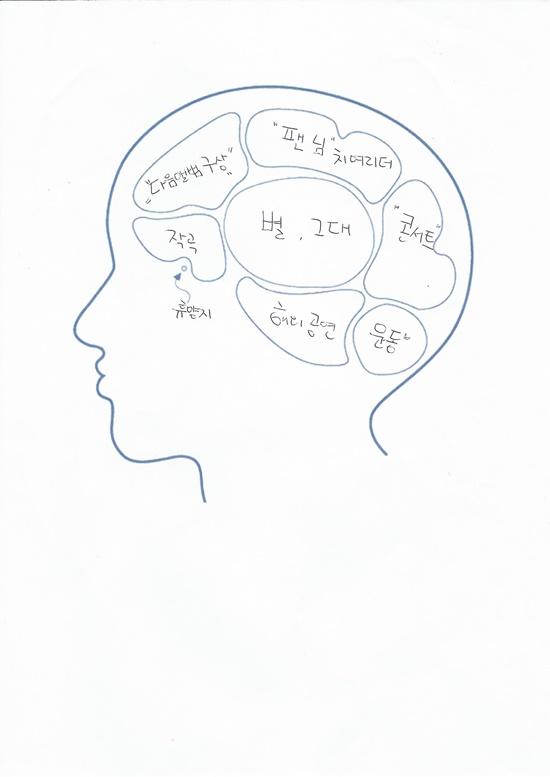 "팬 님"
치어리더
"다음앨범 구상"
별, 그대
"콘서트"
작곡
류양지
해외 공연
운동